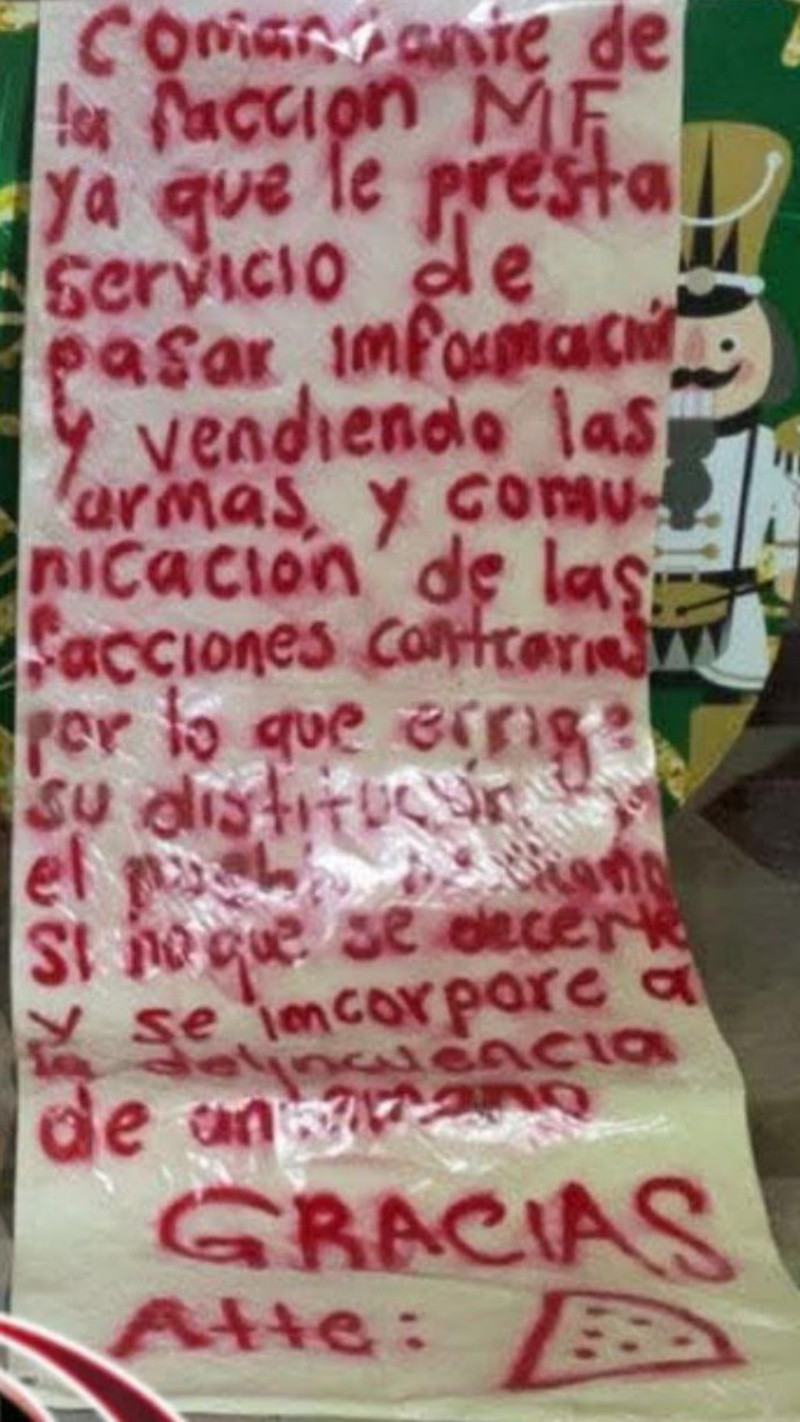 comandante de
la faccion MF
ya que le presta
servicio de
pasar imformación
y vendiendo las
armas, y comu-
nicación de las
facciones contrarias
por lo que errige
su distitución
el
si no que se decerte
y se imcorpore a
la delincuencia
de antemano
GRACIAS
Atte: